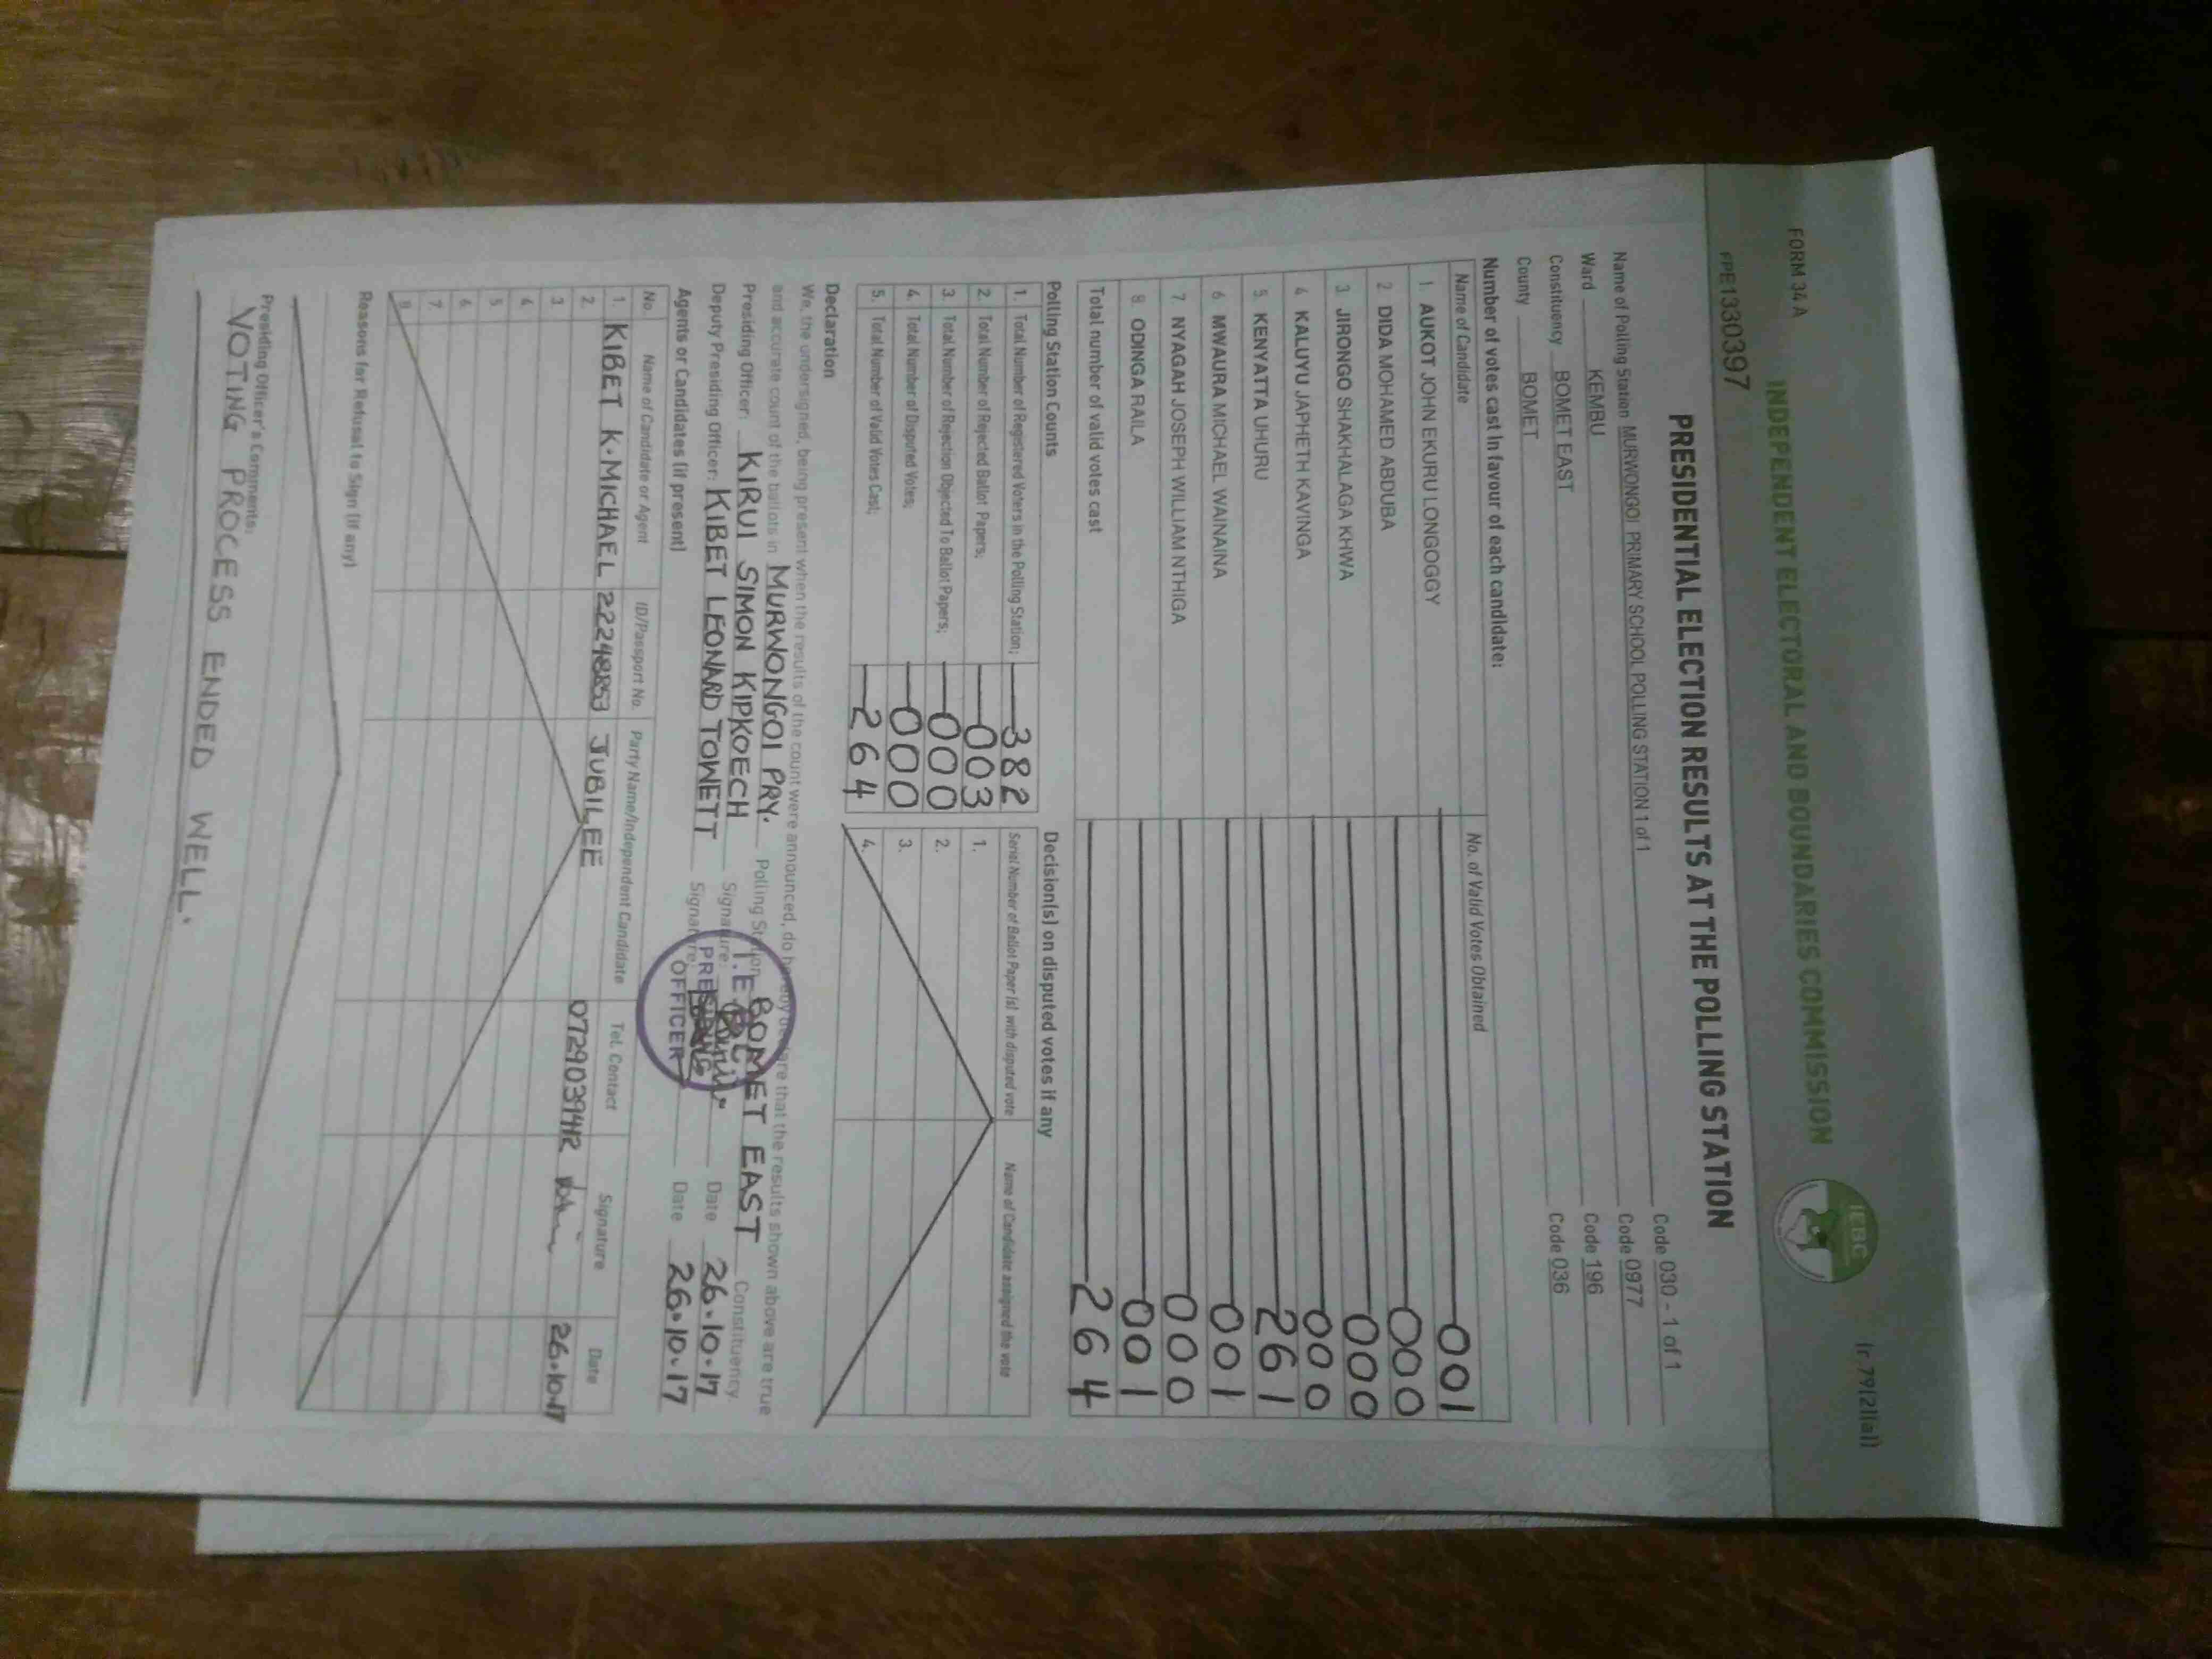 FORM 34A
(r 79(2)(a))
INDEPENDENT ELECTORAL AND BOUNDARIES COMMISSION
IEBC
FPE1330397
PRESIDENTIAL ELECTION RESULTS AT THE POLLING STATION
Name of Polling Station MURWONGOI PRIMARY SCHOOL POLLING STATION 1 of 1 Code 030 - 1 of 1
Ward KEMBU Code 0977
Constituency BOMET EAST Code 196
County BOMET Code 036
Number of votes cast in favour of each candidate:
Name of Candidate No. of Valid Votes Obtained
1. AUKOT JOHN EKURU LONGOGGY 001
2. DIDA MOHAMED ABDUBA 000
3. JIRONGO SHAKHALAGA KHWA 000
4. KALUYU JAPHETH KAVINGA 000
5. KENYATTA UHURU 261
6. MWAURA MICHAEL WAINAINA 001
7. NYAGAH JOSEPH WILLIAM NTHIGA 000
8. ODINGA RAILA 001
Total number of valid votes cast 264
Polling Station Counts Decision(s) on disputed votes if any
1. Total Number of Registered Voters in the Polling Station; 382 Serial Number of Ballot Paper (s) with disputed vote Name of Candidate assigned the vote
2. Total Number of Rejected Ballot Papers; 003 1.
3. Total Number of Rejection Objected To Ballot Papers; 000 2.
4. Total Number of Disputed Votes; 000 3.
5. Total Number of Valid Votes Cast; 264 4.
Declaration
We, the undersigned, being present when the results of the count were announced, do hereby declare that the results shown above are true
and accurate count of the ballots in MURWONGOI PRY. Polling Station BOMET EAST Constituency.
Presiding Officer: KIRUI SIMON KIPKOECH Signature: Date 26.10.17
Deputy Presiding Officer: KIBET LEONARD TOWETT Signature: Date 26.10.17
I.E.B.C
PRESIDING
OFFICER
Agents or Candidates (if present)
No. Name of Candidate or Agent ID/Passport No. Party Name/Independent Candidate Tel. Contact Signature Date
1. KIBET K. MICHAEL 22248853 JUBILEE 0729039412 26.10.17
2.
3.
4.
5.
6.
7.
8.
Reasons for Refusal to Sign (if any)
Presiding Officer's Comments:
VOTING PROCESS ENDED WELL.